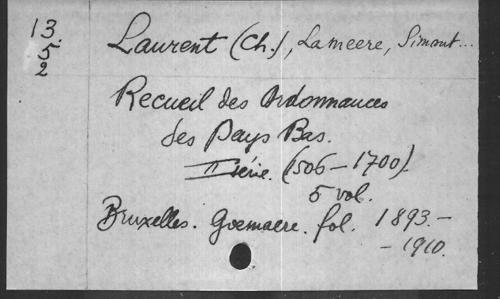 13.
5
2
Laurent (Ch.), Lameere, Simont...
Recueil des Ordonnances
des Pays Bas.
II série. (1506-1700).
5 vol.
Bruxelles. Goemaere. fol. 1893-
-1910.